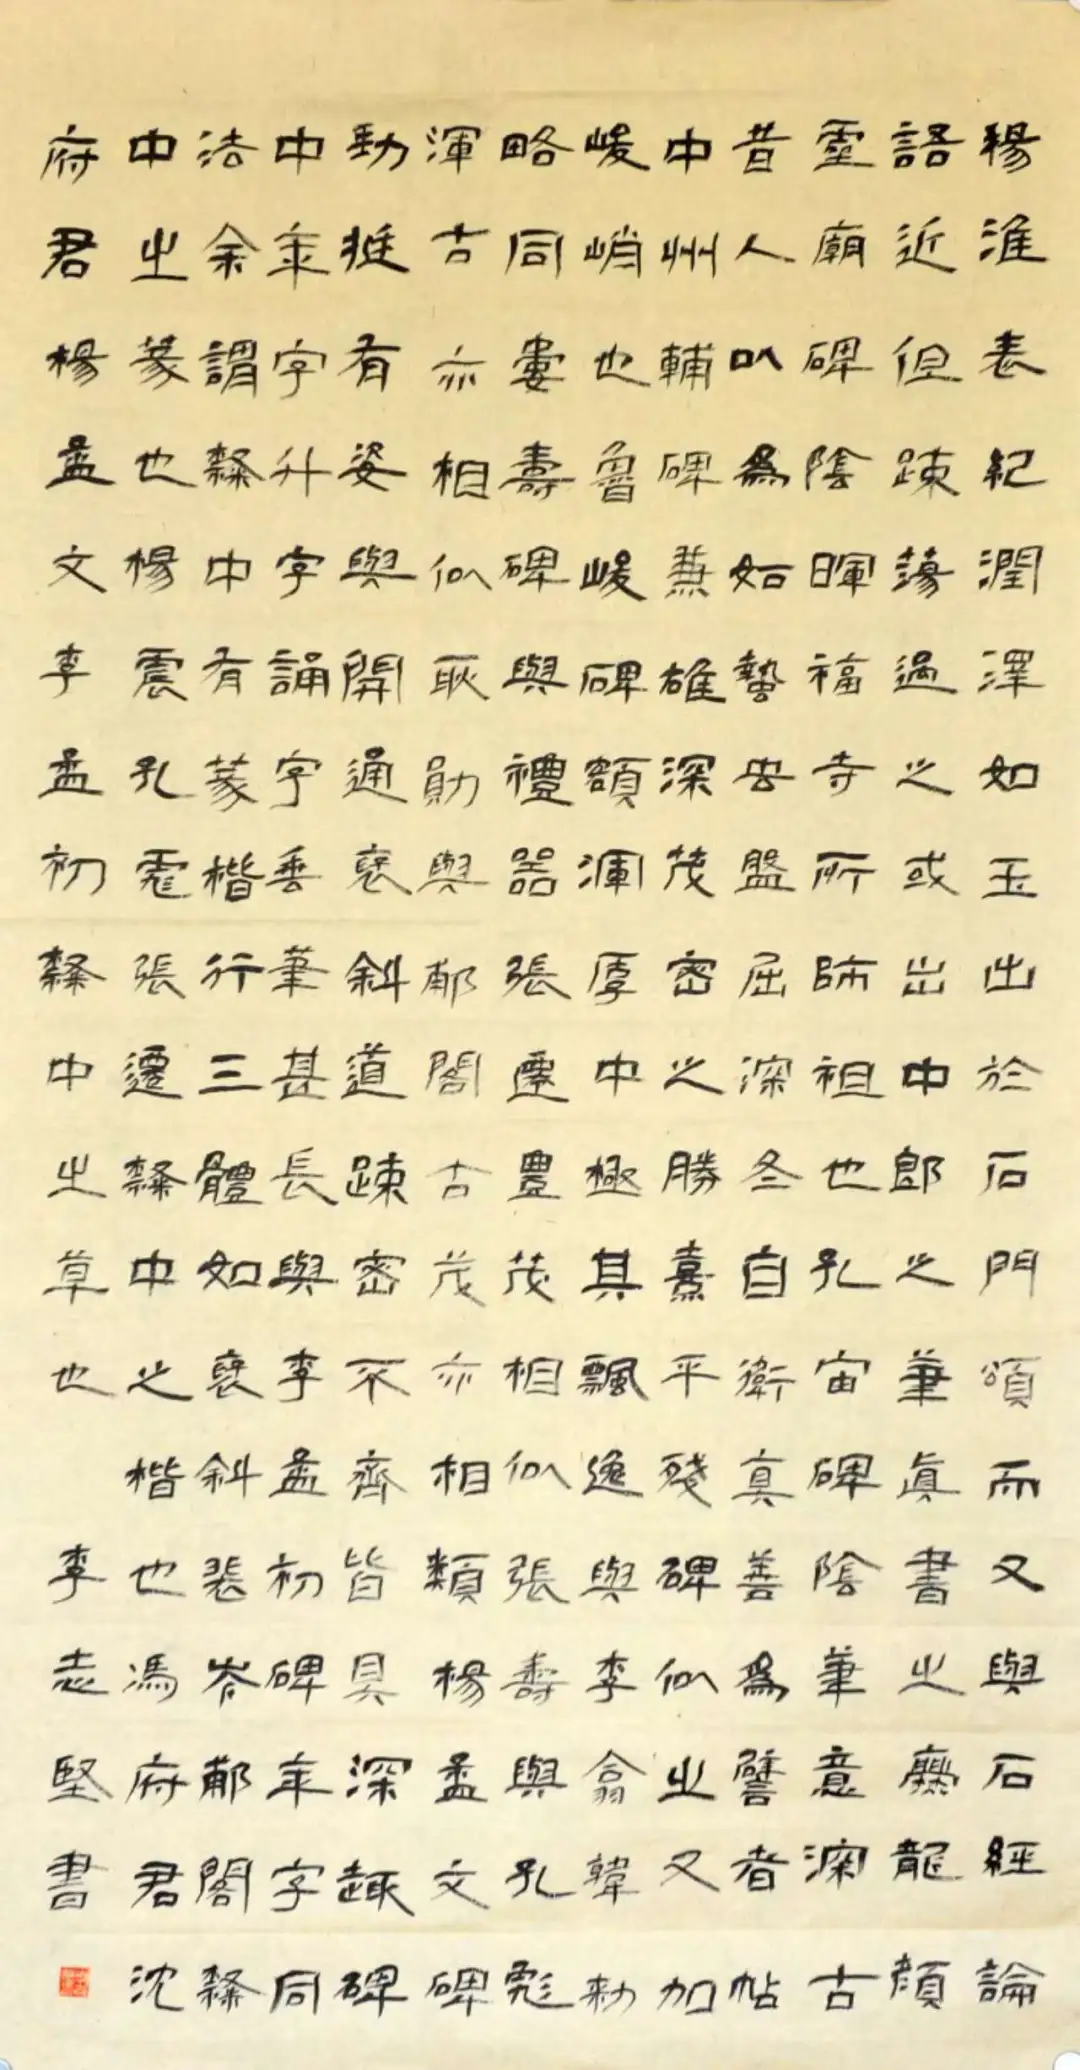 楊淮表紀潤澤如玉出於石門頌而又與石經論
語近但踈蕩過之或出中郎之筆真書之爨龍顏
靈廟碑陰暉福寺所師祖也孔宙碑陰筆意深古
昔人以為如蟄虫盤屈深冬自衛真善為譬者帖
中州輔碑兼雄深茂密之勝熹平殘碑似之又加
峻峭也魯峻碑額渾厚中極其飄逸與李翕韓勑
略同婁壽碑與禮器張遷豐茂相似張壽與孔彪
渾古亦相似耿勛與郙閣古茂亦相類楊孟文碑
勁挺有姿與開通褒斜道踈密不齊皆具深趣碑
中年字升字誦字垂筆甚長與李孟初碑年字同
法余謂隸中有篆楷行三體如褒斜裴岑郙閣隸
中之篆也楊震孔彪張遷隸中之楷也馮府君沈
府君楊孟文李孟初隸中之草也 李志堅書